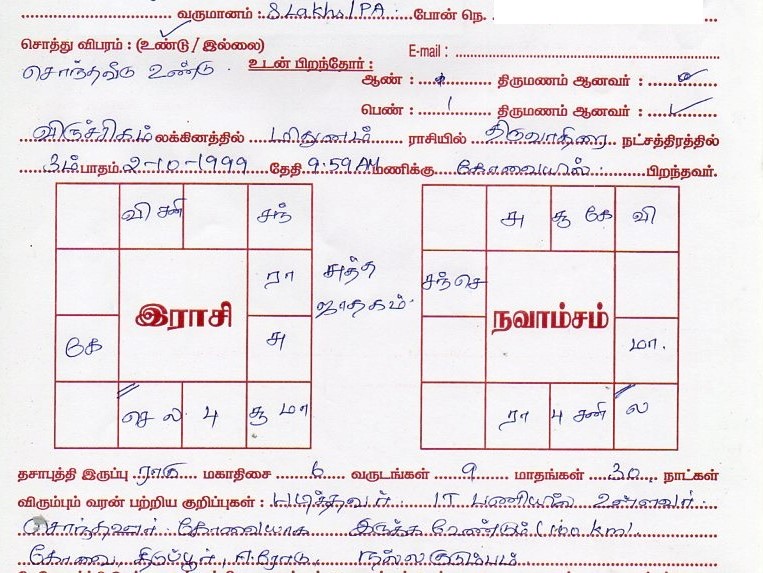 வருமானம் : 8 Lakhs/PA போன் நெ.
சொத்து விபரம் : (உண்டு / இல்லை) E-mail :
சொந்தவீடு உண்டு. உடன் பிறந்தோர் :
ஆண் : திருமணம் ஆனவர் :
பெண் : 1 திருமணம் ஆனவர் : ✓
விருச்சிகம் லக்கினத்தில் மிதுனம் ராசியில் திருவாதிரை நட்சத்திரத்தில்
3ம் பாதம் 2-10-1999 தேதி 9.59 AM மணிக்கு கோவையில் பிறந்தவர்.
வி சனி சந் சு சூ கே வி
ரா சுத்த ஜாதகம். சந் செ
இராசி நவாம்சம்
கே சு மா.
செ ல பு சூ மா ரா பு சனி ல
தசாபுத்தி இருப்பு ராகு மகாதிசை 6 வருடங்கள் 9 மாதங்கள் 30 நாட்கள்
விரும்பும் வரன் பற்றிய குறிப்புகள் : படித்தவர். IT பணியில் உள்ளவர்.
சொந்தஊர் கோவையாக இருக்க வேண்டும் (100 km).
கோவை, திருப்பூர், ஈரோடு, நல்ல குடும்பம்.